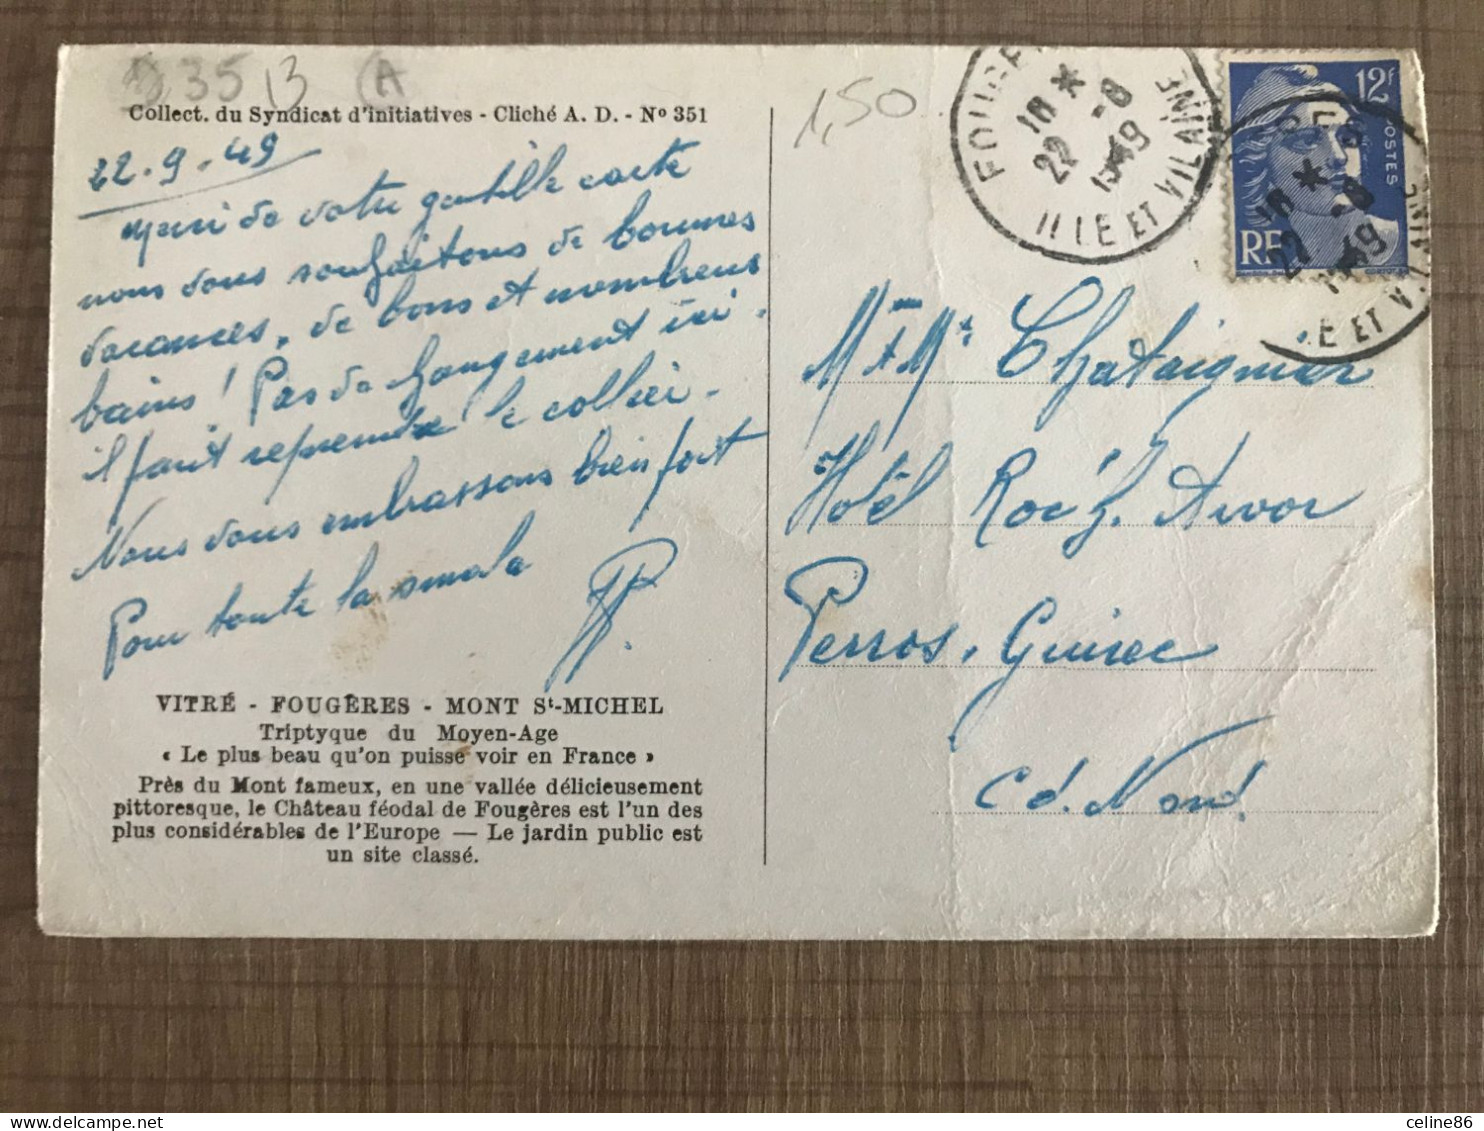 3513 A
Collect. du Syndicat d'initiatives - Cliché A. D. - Nº 351
22.9.49
Merci de votre gentille carte
nous vous souhaitons de bonnes
vacances, de bons et nombreux
bains ! Pas de changement ici.
il faut reprendre le collier.
Nous vous embrassons bien fort
Pour toute la smala
VITRÉ - FOUGÈRES - MONT St-MICHEL
Triptyque du Moyen-Age
« Le plus beau qu'on puisse voir en France »
Près du Mont fameux, en une vallée délicieusement
pittoresque, le Château féodal de Fougères est l'un des
plus considérables de l'Europe — Le jardin public est
un site classé.
1,50
FOUGE
18 *
22 -8
1949
ILLE ET VILAINE
12F
POSTES
RF
18 *
22 -8
1949
LE ET VILAINE
M & Me Chataignier
Hotêl Roc'h. Arvor
Perros. Guirec
C d. Nord.
celine86